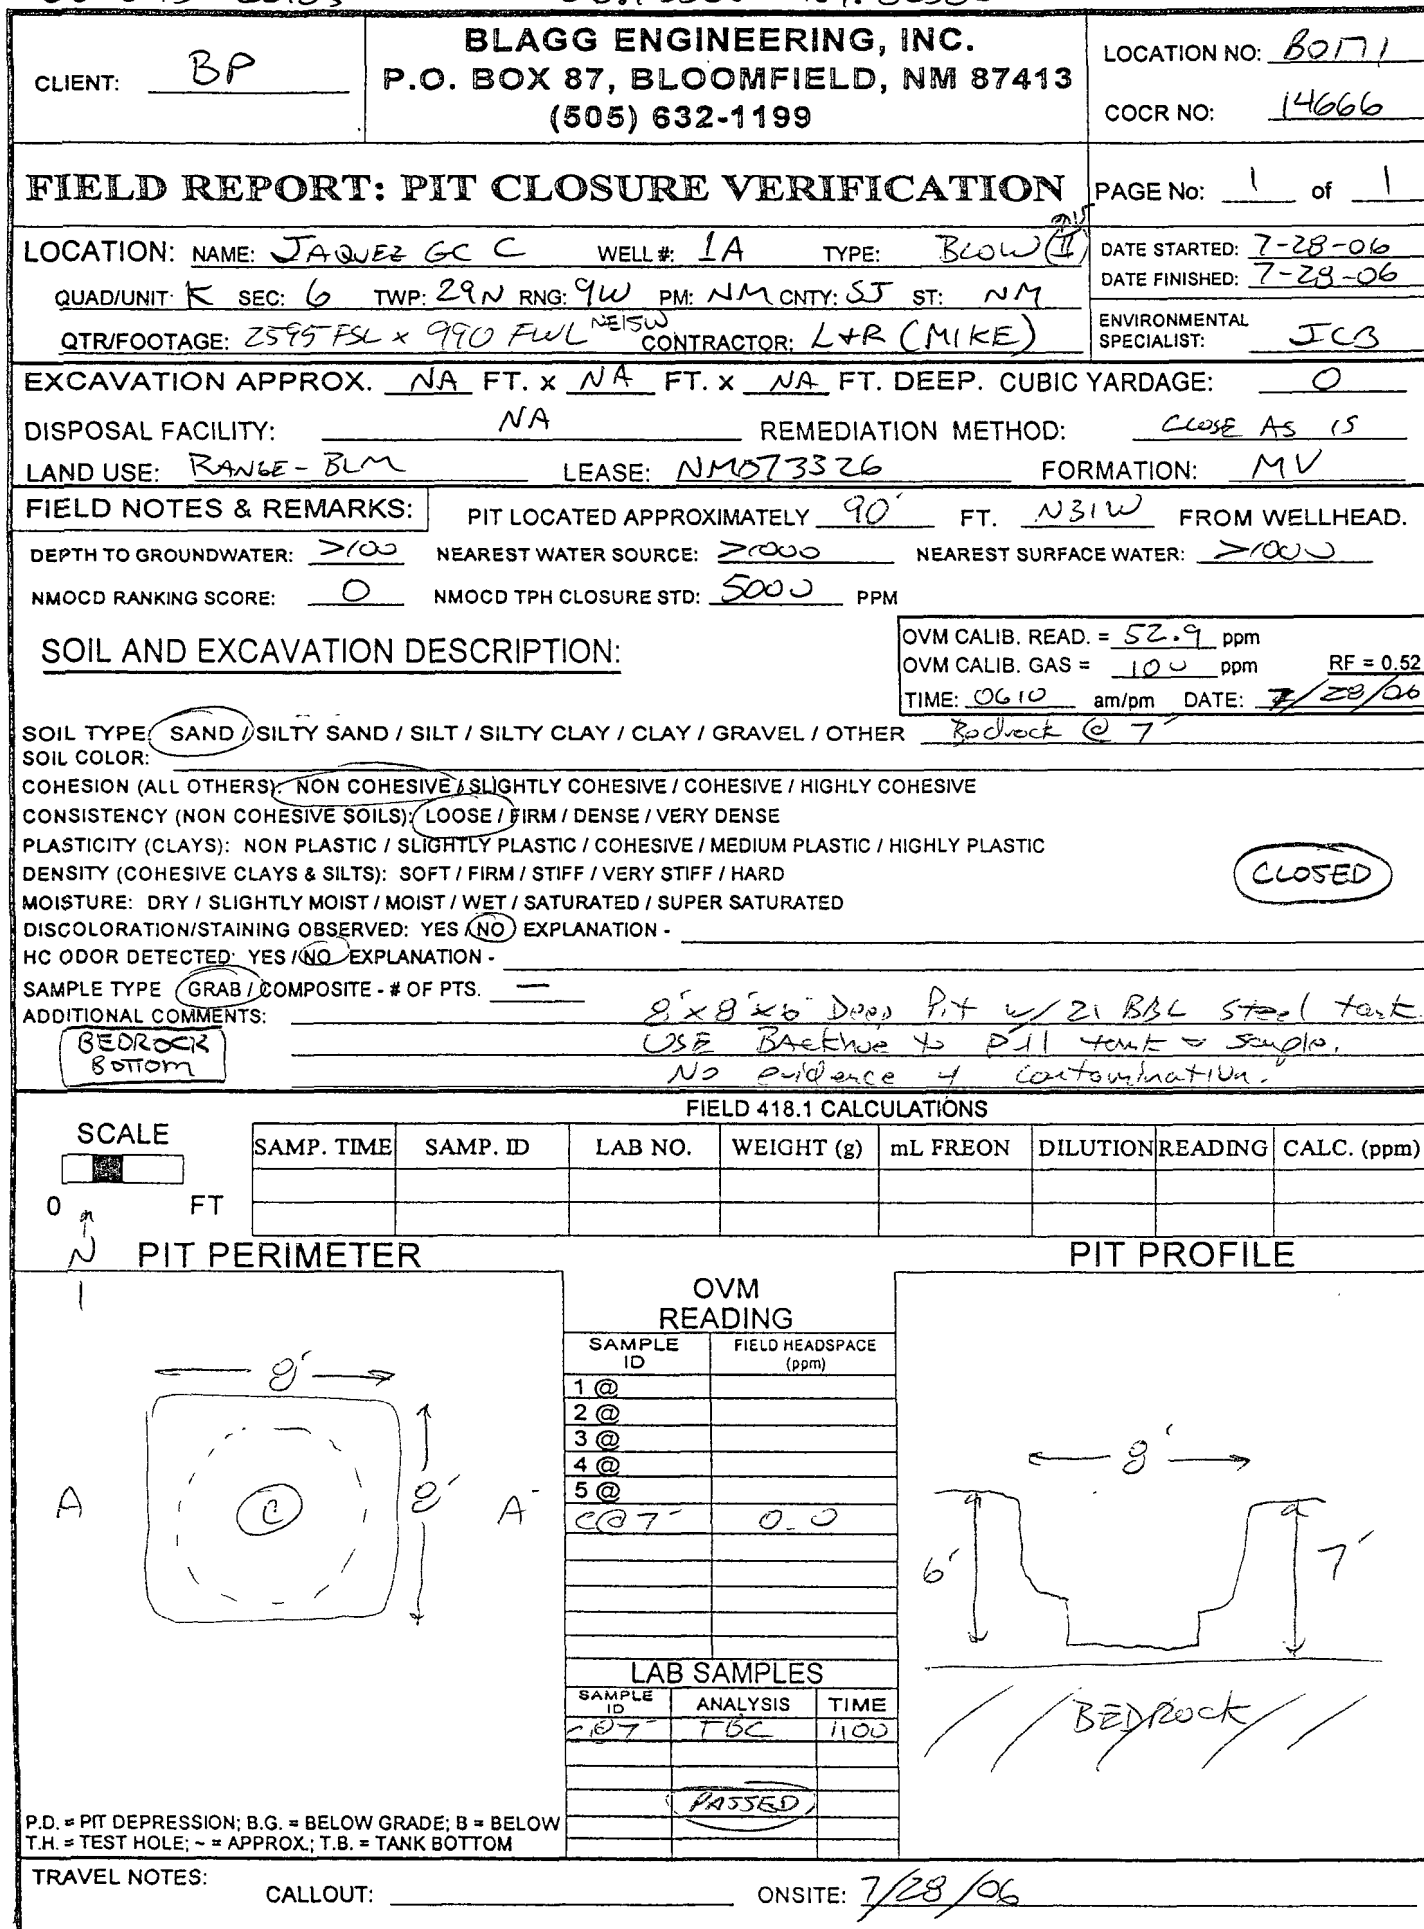 BLAGG ENGINEERING, INC.
P.O. BOX 87, BLOOMFIELD, NM 87413
(505) 632-1199
CLIENT: BP
LOCATION NO: B0171
COCR NO: 14666
FIELD REPORT: PIT CLOSURE VERIFICATION
PAGE No: 1 of 1
LOCATION: NAME: JAQUEZ GC C WELL #: 1A TYPE: BLOW
DATE STARTED: 7-28-06
DATE FINISHED: 7-28-06
QUAD/UNIT: K SEC: 6 TWP: 29N RNG: 9W PM: NM CNTY: SJ ST: NM
QTR/FOOTAGE: 2595 FSL x 990 FWL NE/SW CONTRACTOR: L+R (MIKE)
ENVIRONMENTAL SPECIALIST: JCB
EXCAVATION APPROX. NA FT. x NA FT. x NA FT. DEEP. CUBIC YARDAGE: 0
DISPOSAL FACILITY: NA REMEDIATION METHOD: CLOSE AS IS
LAND USE: RANGE - BLM LEASE: NM073326 FORMATION: MV
FIELD NOTES & REMARKS: PIT LOCATED APPROXIMATELY 90' FT. N31W FROM WELLHEAD.
DEPTH TO GROUNDWATER: >100 NEAREST WATER SOURCE: >1000 NEAREST SURFACE WATER: >1000
NMOCD RANKING SCORE: 0 NMOCD TPH CLOSURE STD: 5000 PPM
SOIL AND EXCAVATION DESCRIPTION:
OVM CALIB. READ. = 52.9 ppm
OVM CALIB. GAS = 100 ppm RF = 0.52
TIME: 0610 am/pm DATE: 7/28/06
SOIL TYPE: SAND / SILTY SAND / SILT / SILTY CLAY / CLAY / GRAVEL / OTHER Bedrock @ 7'
SOIL COLOR:
COHESION (ALL OTHERS): NON COHESIVE / SLIGHTLY COHESIVE / COHESIVE / HIGHLY COHESIVE
CONSISTENCY (NON COHESIVE SOILS): LOOSE / FIRM / DENSE / VERY DENSE
PLASTICITY (CLAYS): NON PLASTIC / SLIGHTLY PLASTIC / COHESIVE / MEDIUM PLASTIC / HIGHLY PLASTIC
DENSITY (COHESIVE CLAYS & SILTS): SOFT / FIRM / STIFF / VERY STIFF / HARD
CLOSED
MOISTURE: DRY / SLIGHTLY MOIST / MOIST / WET / SATURATED / SUPER SATURATED
DISCOLORATION/STAINING OBSERVED: YES / NO EXPLANATION -
HC ODOR DETECTED: YES / NO EXPLANATION -
SAMPLE TYPE GRAB / COMPOSITE - # OF PTS. —
ADDITIONAL COMMENTS: 8'x8'x6' Deep Pit w/ 21 BBL Steel tank.
BEDROCK BOTTOM
USE Backhoe to pull tank & sample.
No evidence of contamination.
FIELD 418.1 CALCULATIONS
SCALE
0 FT
SAMP. TIME SAMP. ID LAB NO. WEIGHT (g) mL FREON DILUTION READING CALC. (ppm)
N
PIT PERIMETER
PIT PROFILE
OVM READING
SAMPLE ID FIELD HEADSPACE (ppm)
1 @
2 @
3 @
4 @
5 @
C@7' 0.0
8'
A
C
8'
A'
8'
6'
7'
BEDROCK
LAB SAMPLES
SAMPLE ID ANALYSIS TIME
C@7' TBC 1100
PASSED
P.D. = PIT DEPRESSION; B.G. = BELOW GRADE; B = BELOW
T.H. = TEST HOLE; ~ = APPROX.; T.B. = TANK BOTTOM
TRAVEL NOTES: CALLOUT: ONSITE: 7/28/06